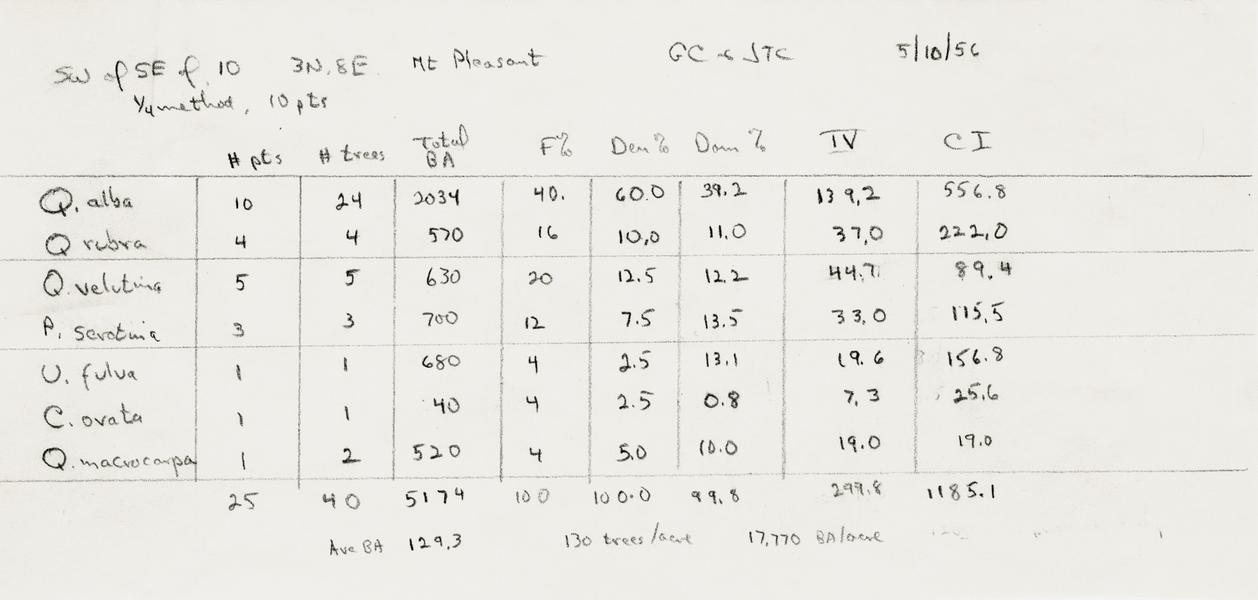 SW of SE of 10 3N, 8E. Mt Pleasant GC & JTC 5/10/56
1/4 method, 10 pts
# pts # trees Total BA F% Den % Dom % IV CI
Q. alba 10 24 2034 40. 60.0 39.2 139,2 556.8
Q rubra 4 4 570 16 10,0 11.0 37,0 222,0
Q. velutina 5 5 630 20 12.5 12.2 44.7 89.4
P. serotina 3 3 700 12 7.5 13.5 33,0 115,5
U. fulva 1 1 680 4 2.5 13.1 19.6 156.8
C. ovata 1 1 40 4 2.5 0.8 7,3 25,6
Q. macrocarpa 1 2 520 4 5.0 10.0 19.0 19.0
25 40 5174 100 100.0 99.8 299.8 1185.1
Ave BA 129.3 130 trees/acre 17,770 BA/acre